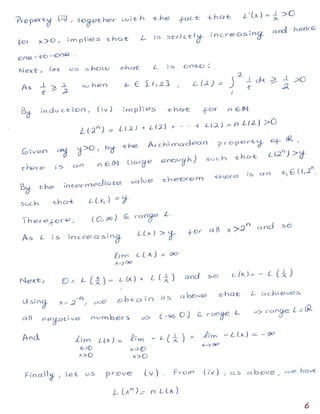 Property (ii), together with the fact that L'(x) = 1/x > 0
for x>0, implies that L is strictly increasing and hence
one-to-one.
Next, let us show that L is onto:
As 1/t ≥ 1/2 when t ∈ [1,2], L(2) = ∫₁² 1/t dt ≥ 1/2 > 0
By induction, (iv) implies that for n∈ℕ
L(2ⁿ) = L(2) + L(2) + ... + L(2) = n L(2) > 0
Given any y>0, by the Archimadean property of ℝ,
there is an n∈ℕ (large enough) such that L(2ⁿ) > y
By the intermediate value theorem there is an x₁∈(1,2ⁿ)
such that L(x₁) = y
Therefore, (0,∞) ⊆ range L
As L is increasing L(x) > y for all x > 2ⁿ and so
lim x→∞ L(x) = ∞
Next, 0 = L(x/x) = L(x) + L(1/x) and so L(x) = - L(1/x)
Using x = 2⁻ⁿ, we obtain as above that L achieves
all negative numbers ⇒ (-∞,0) ⊆ range L ⇒ range L = ℝ
And lim x→0 x>0 L(x) = lim x→0 x>0 - L(1/x) = lim x→∞ -L(x) = -∞
Finally, let us prove (v). From (iv), as above, we have
L(xⁿ) = n L(x)
6